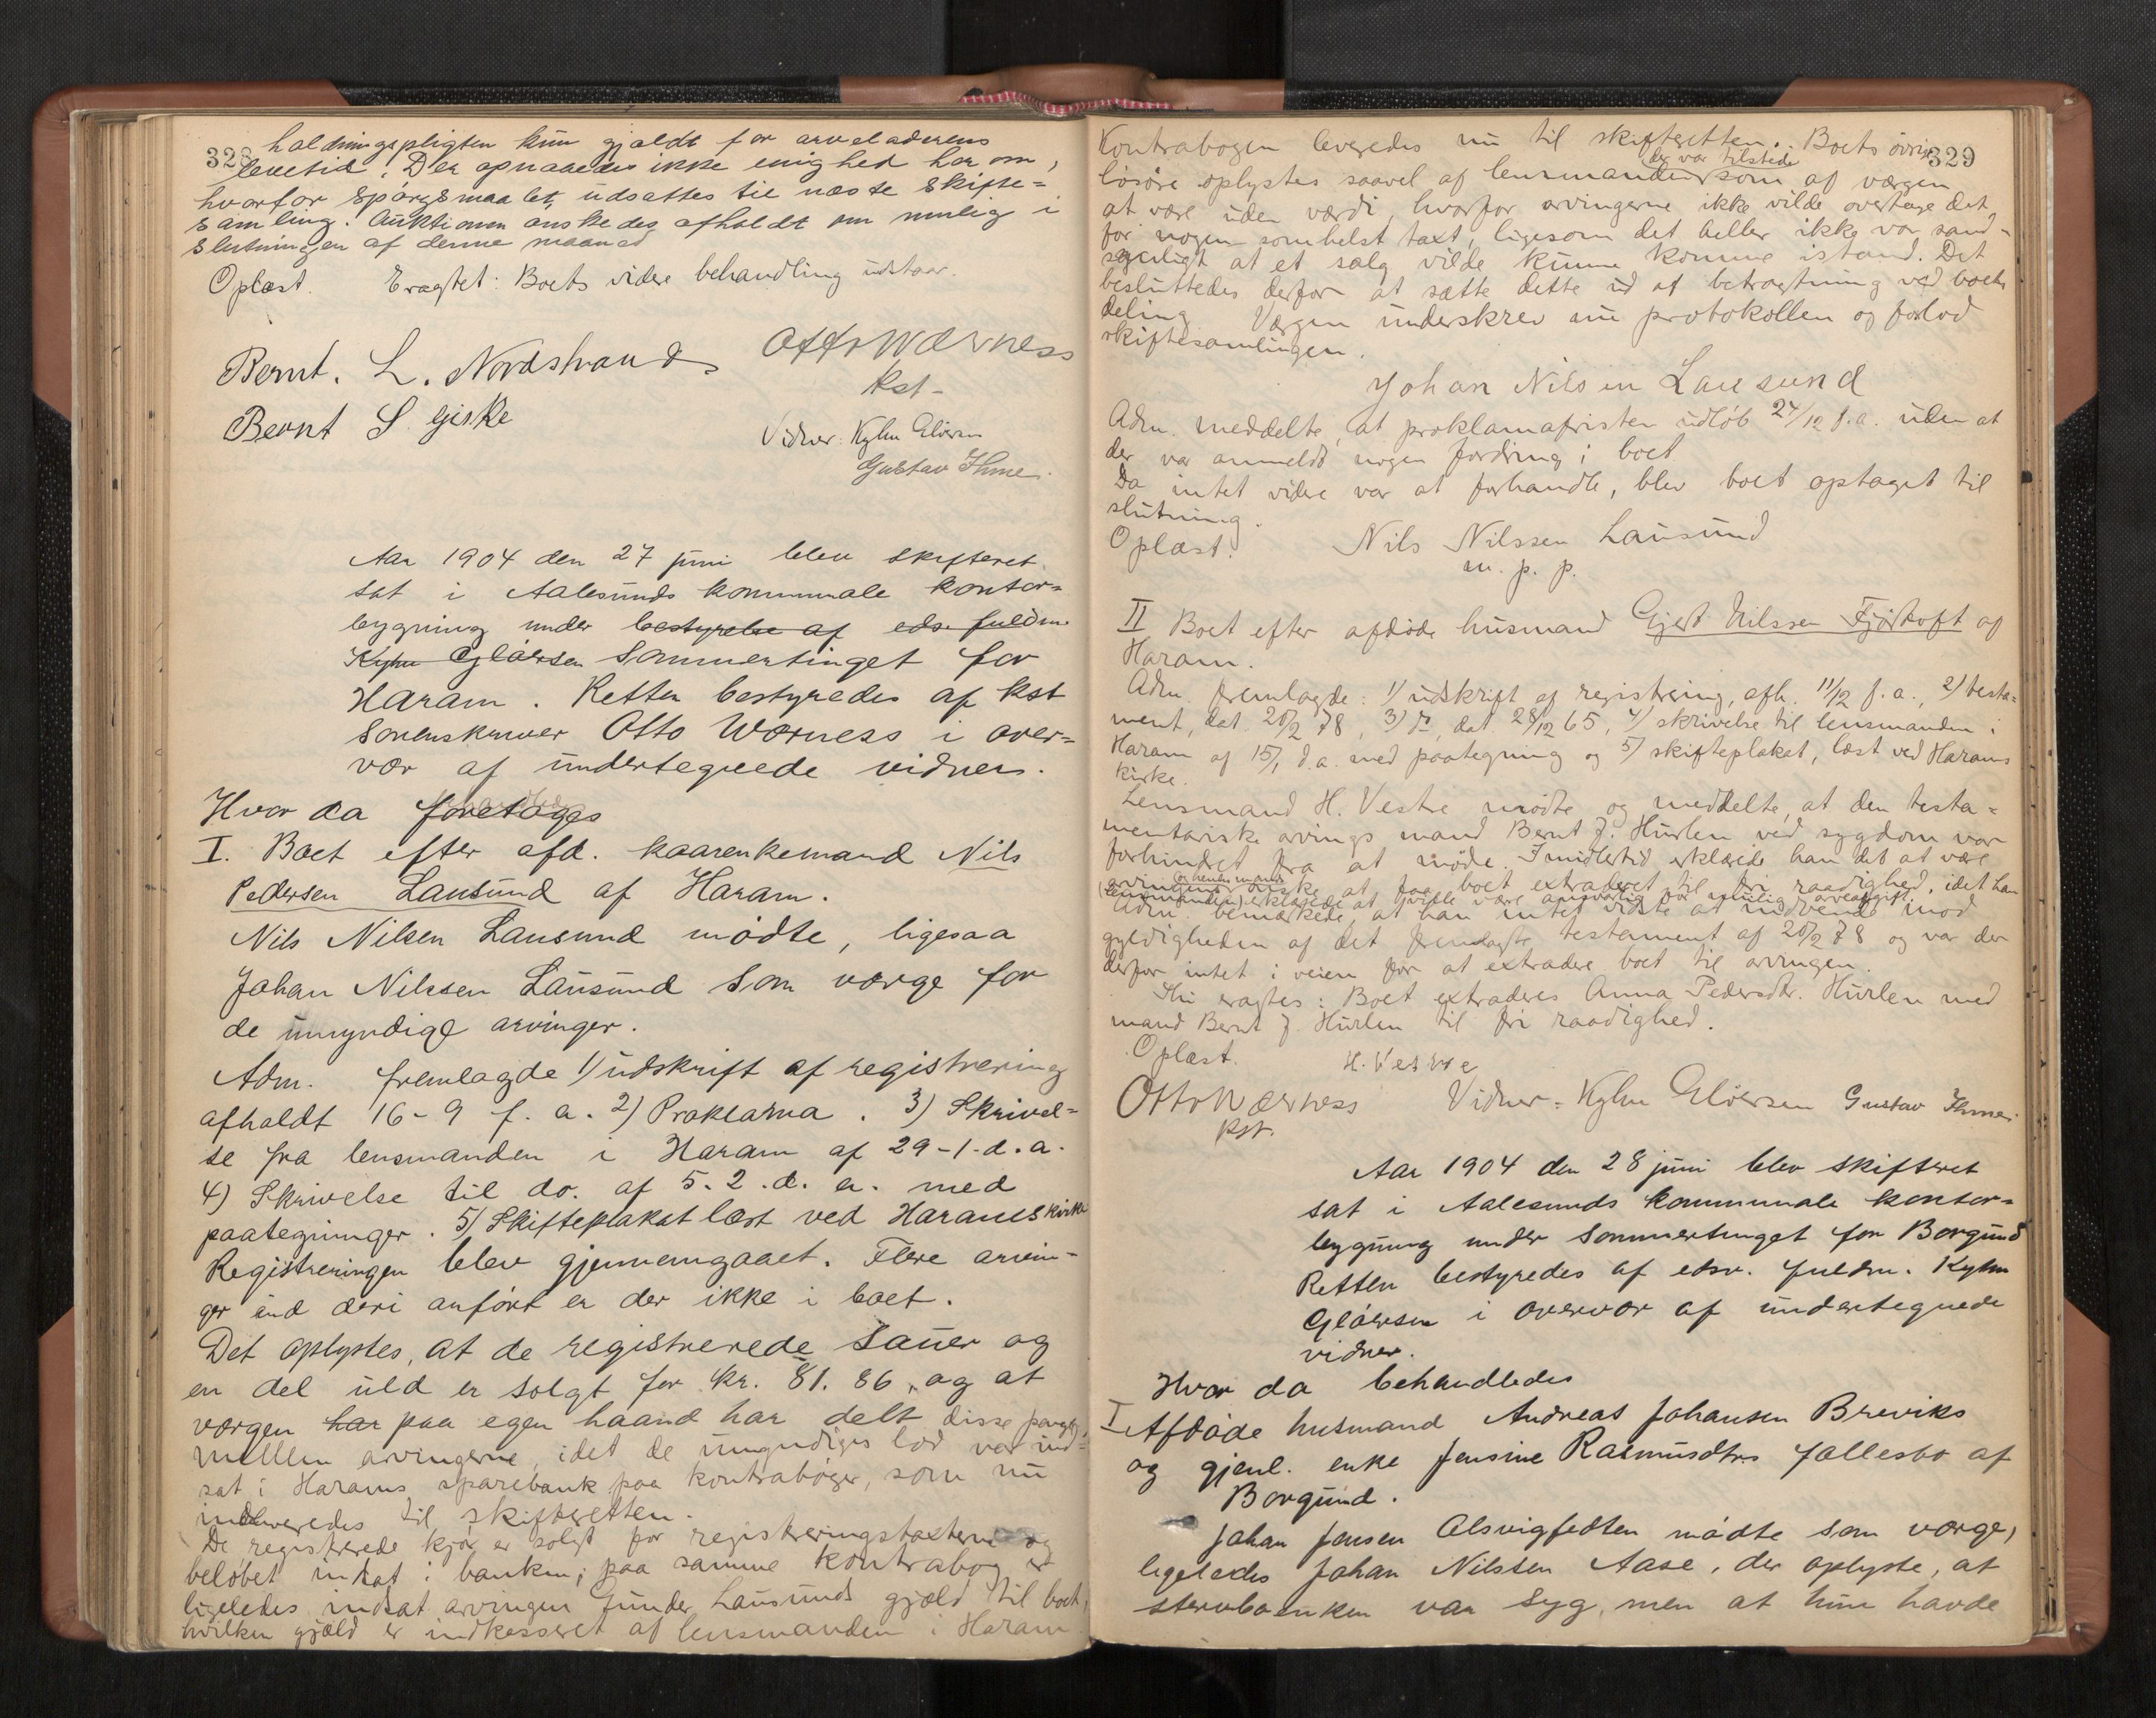 328
holdningspligten kun gjaldt for arveladerens
levetid. Der opnaaedes ikke enighed her om,
hvorfor spørgsmaalet udsattes til næste skifte=
samling. Auktionen ønskedes afholdt om mulig i
slutningen af denne maaned
Oplæst. Eragtet: Boets videre behandling udstaar.
Bernt. L. Nordstrand
Otto Wærness
kst-
Bernt S. Giske
Vidner: Kyhn Gløersen
Gustav Ihme.
Aar 1904 den 27 juni blev skifteret
sat i Aalesunds kommunale kontor=
bygning under bestyrelse af eds. fuldm.
Kyhn Gløersen Sommertinget for
Haram. Retten bestyredes af kst
Sorenskriver Otto Wærness i over=
vær af undertegnede vidner.
Hvor da foretoges
I. Boet efter afd. kaarenkemand Nils
Pedersen Lausund af Haram.
Nils Nilsen Lausund mødte, ligesaa
Johan Nilssen Lausund som værge for
de umyndige arvinger.
Adm. fremlagde 1) udskrift af registrering
afholdt 16-9 f. a. 2) Proklama. 3) Skrivel=
se fra lensmanden i Haram af 29-1-d.a.
4) Skrivelse til do. af 5.2.d.a. med
paategninger. 5) Skifteplakat læst ved Harams kirke
Registreringen blev gjennemgaaet. Flere arvin-
ger end deri anført er der ikke i boet.
Det oplystes, at de registrerede Sauer og
en del uld er solgt for kr. 81.86, og at
værgen har paa egen haand har delt disse penge
mellem arvingerne, idet de umyndiges lod var ind=
sat i Harams sparebank paa kontrabøger, som nu
indleveredes til skifteretten.
De registrerede kjør er solgt for registreringstaxterne og
beløbet indsat i banken; paa samme kontrabog er
ligeledes indsat arvingen Gunder Lausunds gjæld til boet,
hvilken gjæld er indkasseret af lensmanden i Haram
329
Kontrabogen leveredes nu til skifteretten. Boets øvrige
der var tilstede
løsøre oplystes saavel af lensmanden som af værgen
at være uden værdi, hvorfor arvingerne ikke vilde overtage det
for nogen somhelst taxt, ligesom det heller ikke var sand-
synligt at et salg vilde kunne komme istand. Det
besluttedes derfor at sætte dette ud af betragtning ved boets
deling. Værgen underskrev nu protokollen og forlod
skiftesamlingen.
Johan Nilsen Lausund
Adm. meddelte, at proklamafristen udløb 27/12 f.a. uden at
der var anmeldt nogen fordring i boet
Da intet videre var at forhandle, blev boet optaget til
slutning.
Oplæst. Nils Nilssen Lausund
m. p. p.
II Boet efter afdøde husmand Gjert Nilssen Fjørtoft af
Haram.
Adm. fremlagde: 1) udskrift af registrering, afh. 11/12 f.a., 2) testa=
ment, dat 20/2 78, 3) do, dat 28/12 65, 4) skrivelse til lensmanden i
Haram af 15/1 d.a. med paategning og 5) skifteplakat, læst ved Harams
kirke.
Lensmand H. Vestre mødte og meddelte, at den testa=
mentariske arvings mand Bernt J. Hurlen ved sygdom var
forhindret fra at møde. Imidlertid erklærede han det at være
og hendes mands
arvingens ønske at faa boet extraderet til fri raadighed, idet han
(lensmanden) erklærede at ville være ansvarlig for mulig arveafgift.
Adm. bemærkede, at han intet vidste at indvende mod
gyldigheden af det fremlagte testament af 20/2 78 og var der
derfor intet i veien for at extradere boet til arvingen.
Thi eragtes: Boet extraderes Anna Pedersdtr. Hurlen med
mand Bernt J. Hurlen til fri raadighed.
Oplæst. H. Vestre
Otto Wærness Vidner: Kyhn Gløersen Gustav Ihme.
kst.
Aar 1904 den 28 juni blev skifteret
sat i Aalesunds kommunale kontor=
bygning under Sommertinget for Borgund
Retten bestyredes af edsv. fuldm. Kyhn
Gløersen i overvær af undertegnede
vidner.
Hvor da behandledes
I Afdøde husmand Andreas Johansen Breviks
og gjenl. enke Jensine Rasmusdtrs fællesbo af
Borgund.
Johan Jensen Alsvigfedten mødte som værge,
ligeledes Johan Nilssen Aase, der oplyste, at
stervboenken var syg, men at hun havde